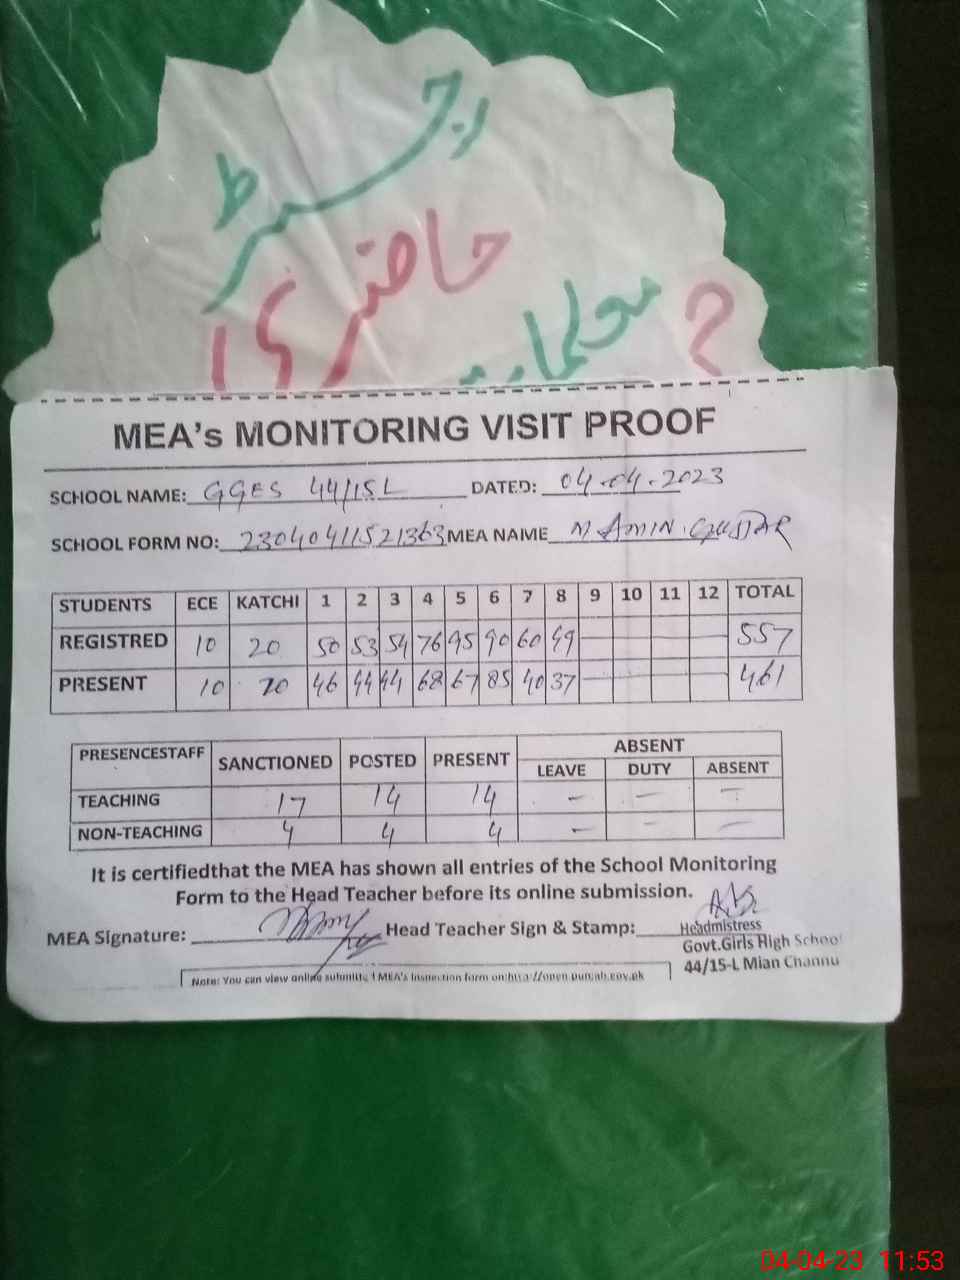 رجسٹر
حاضری
معلمات
MEA's MONITORING VISIT PROOF
SCHOOL NAME: GGES 44/15L DATED: 04-04-2023
SCHOOL FORM NO: 23040411521363 MEA NAME M AMIN
STUDENTS ECE KATCHI 1 2 3 4 5 6 7 8 9 10 11 12 TOTAL
REGISTRED 10 20 50 53 54 76 95 90 60 49 557
PRESENT 10 20 46 44 44 68 67 85 40 37 461
PRESENCESTAFF SANCTIONED POSTED PRESENT ABSENT
LEAVE DUTY ABSENT
TEACHING 17 14 14 - - -
NON-TEACHING 4 4 4 - - -
It is certifiedthat the MEA has shown all entries of the School Monitoring
Form to the Head Teacher before its online submission.
MEA Signature: Head Teacher Sign & Stamp:
Headmistress
Govt.Girls High School
44/15-L Mian Channu
Note: You can view online submitted MEA's Inspection form on:http://open.punjab.gov.pk
04-04-23 11:53